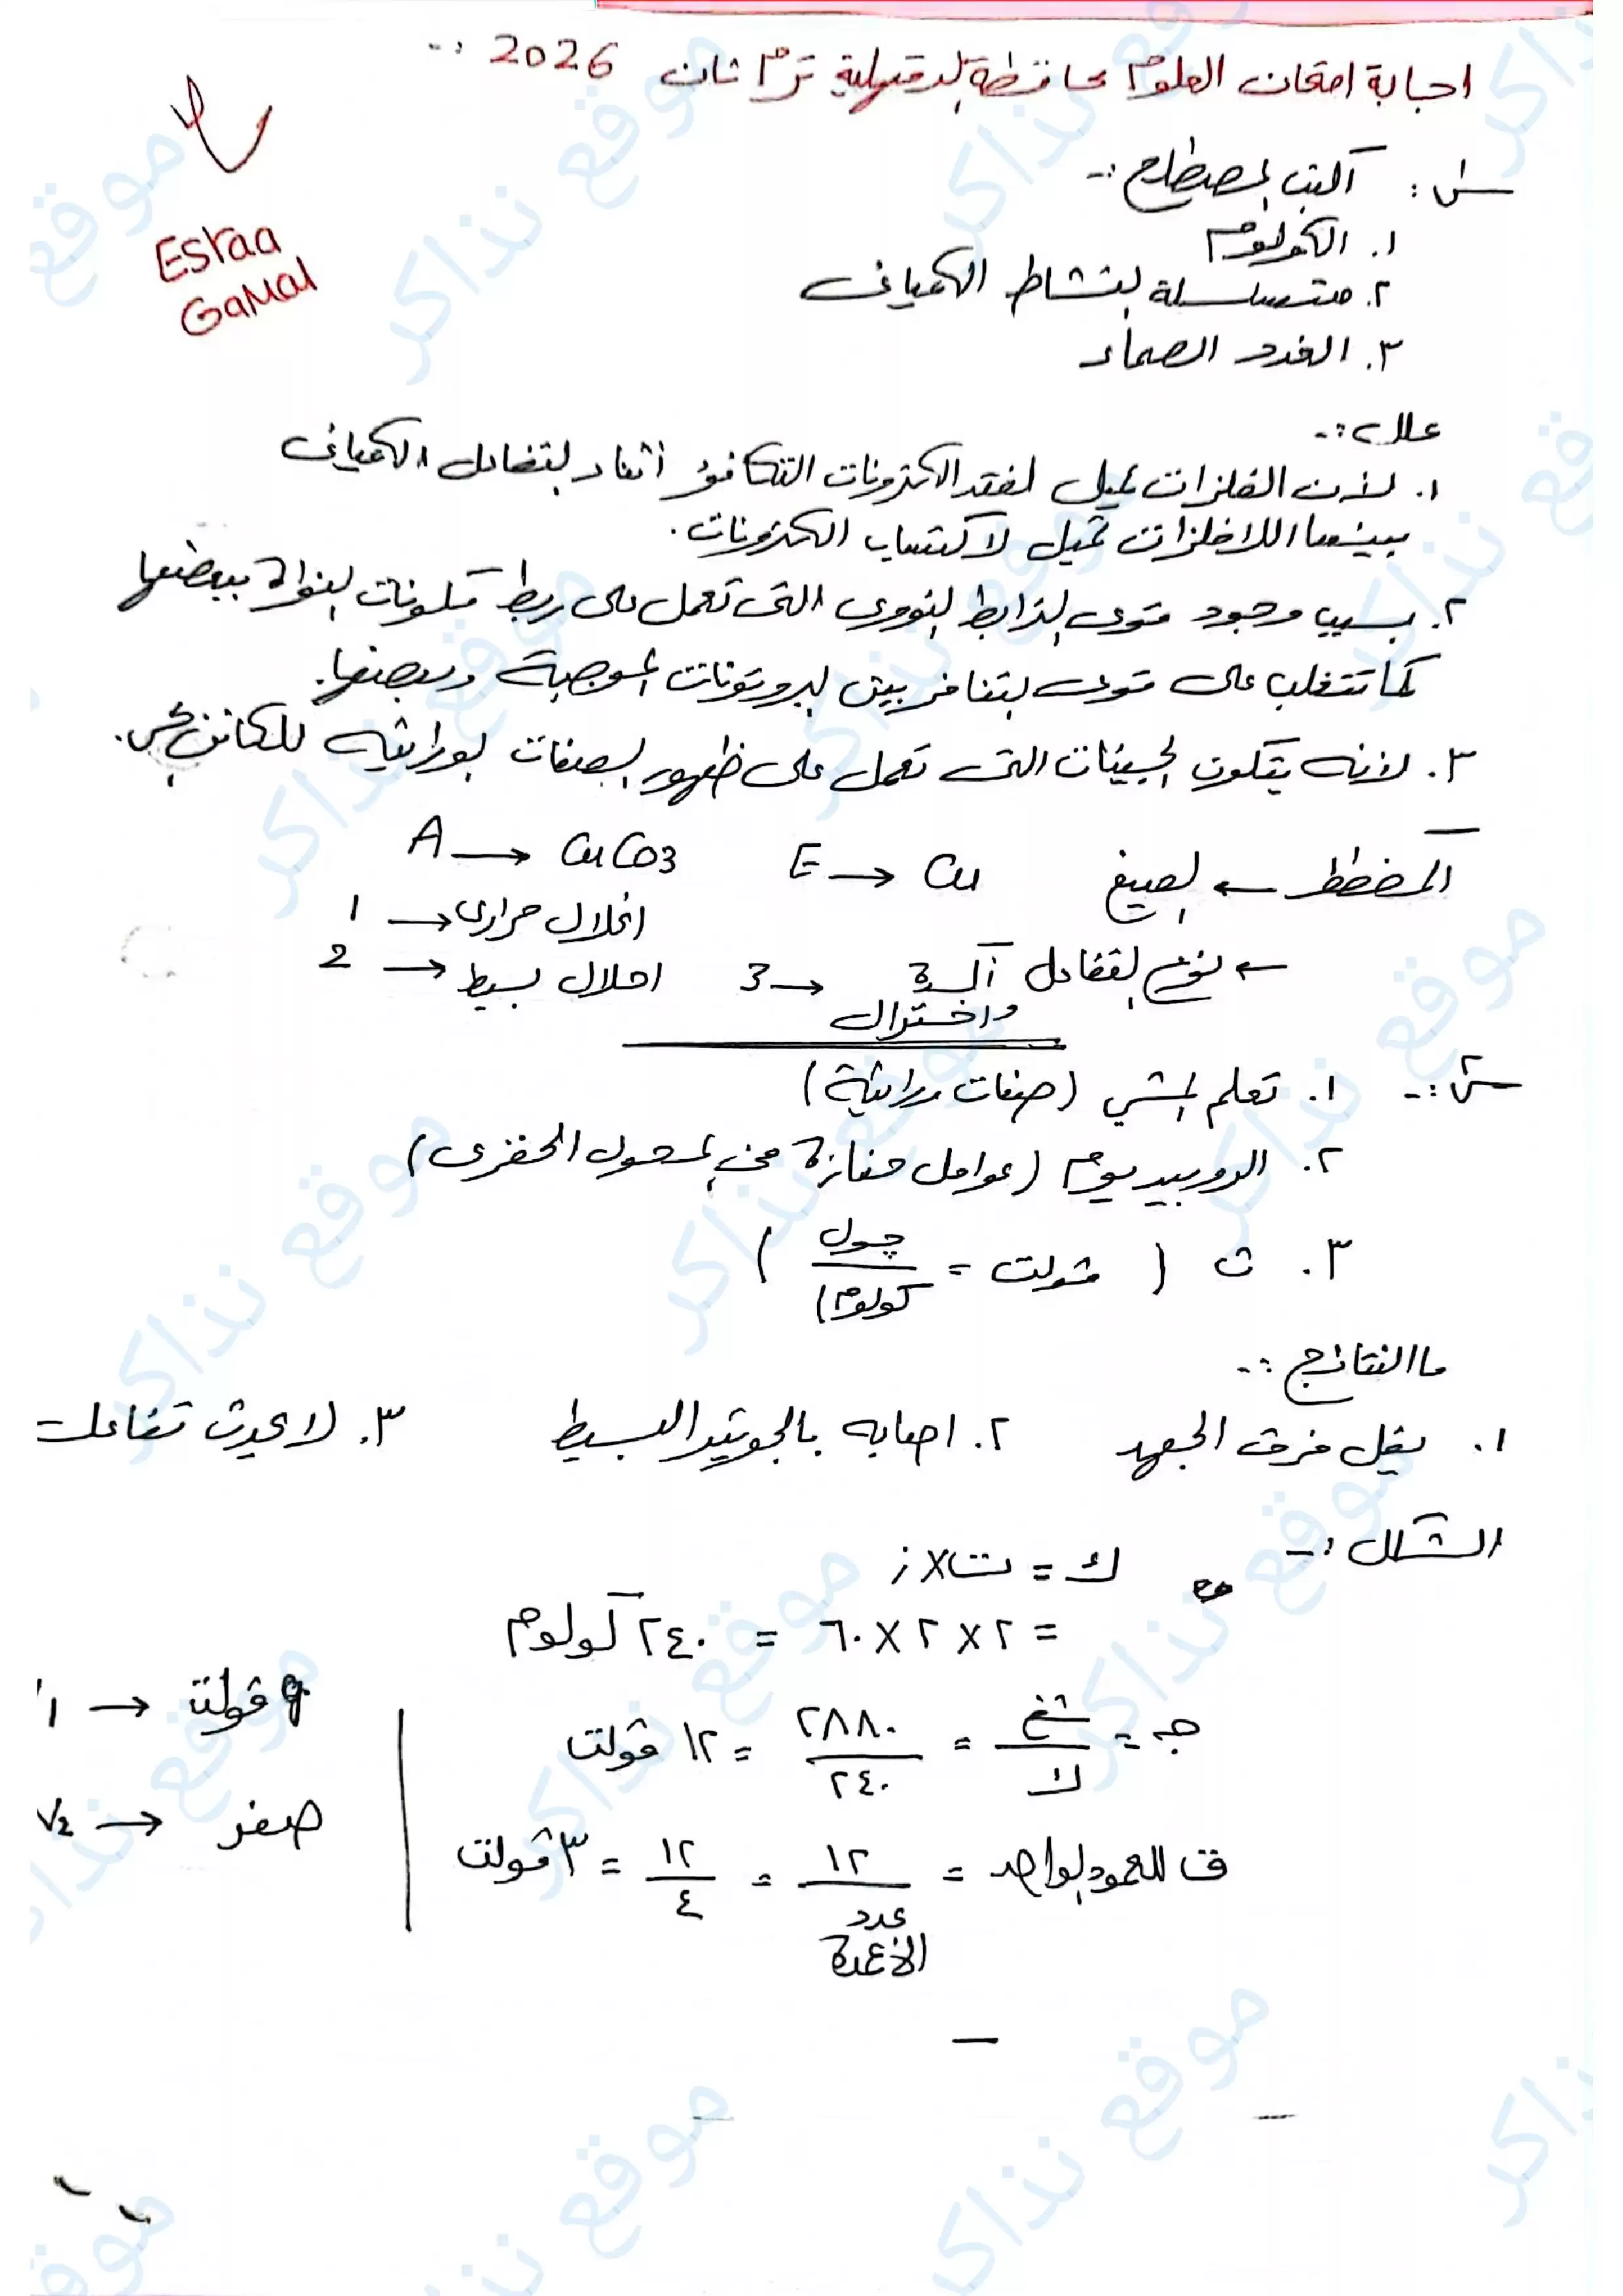 اجابة امتحان العلوم محافظة الدقهلية ترم ثان 2026 :-
Esraa
GaMal
س١: أكتب المصطلح :-
١. الكولوم
٢. متسلسلة النشاط الكميائى
٣. الغدد الصماء
علل :-
١. لأن الفلزات تميل لفقد الكترونات التكافؤ أثناء التفاعل الكميائى
بينما اللافلزات تميل لاكتساب الكترونات.
٢. بسبب وجود قوى الترابط النووى التى تعمل على ربط مكونات النواة ببعضها
كما تتغلب على قوى التنافر بين البروتونات الموجبة وبعضها.
٣. لأنه يتكون الجينات التى تعمل على ظهور الصفات الوراثيه للكائن الحى.
المخطط ← الصيغ E → Cu A → CuCO3
انحلال حرارى → 1
← نوع التفاعل أكسدة → 3 احلال بسيط → 2
واختزال
س٢ :- ١. تعلم المشي (صفات وراثية)
٢. الروبيديوم (عوامل حفازة فى المحول الحفزى)
٣. ث (فولت = جول / كولوم)
ما النتائج :-
١. يقل فرق الجهد ٢. اصابه بالجويتر البسيط ٣. لا يحدث تفاعل
الشكل :-
ك = ت × ز
= ٢ × ٢ × ٦٠ = ٢٤٠ كولوم
جـ = شغ / ك = ٢٨٨٠ / ٢٤٠ = ١٢ ڤولت
٩ ڤولت → ١
ق للعمود الواحد = ١٢ / عدد الأعمدة = ١٢ / ٤ = ٣ ڤولت
صفر → V2
موقع نذاكر